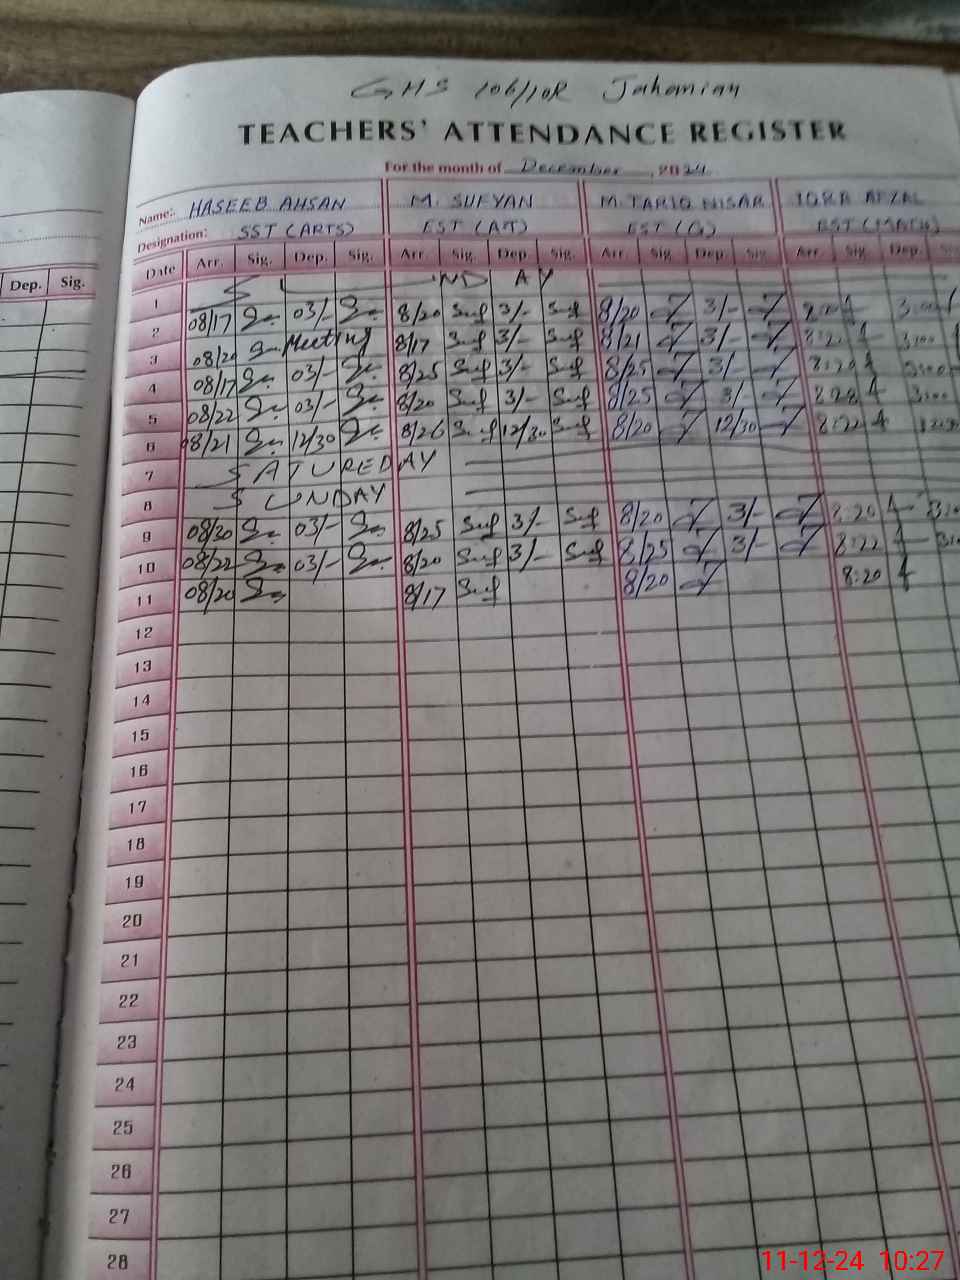 GHS 106/10R Jahanian
TEACHERS' ATTENDANCE REGISTER
For the month of December, 2024
Name: HASEEB AHSAN M. SUFYAN M. TARIQ NISAR IQRA AFZAL
Designation: SST (ARTS) EST (Art) EST (G) EST (MATH)
Dep. Sig. Date Arr. Sig. Dep. Sig. Arr Sig. Dep. Sig. Arr. Sig Dep. Sig Arr. Sig. Dep.
1 SUNDAY
2 08/17 03/- 8/20 Suf 3/- Suf 8/20 3/-
3 08/20 Meeting 8/17 Suf 3/- Suf 8/21 3/-
4 08/17 03/- 8/25 Suf 3/- Suf 8/25 3/-
5 08/22 03/- 8/20 Suf 3/- Suf 8/25 3/-
6 08/21 12/30 8/26 Suf 12/30 Suf 8/20 12/30 8:22
7 SATUREDAY
8 SUNDAY
9 08/30 03/- 8/25 Suf 3/- Suf 8/20 3/- 8:20
10 08/22 03/- 8/20 Suf 3/- Suf 8/25 3/- 8:22
11 08/20 8/17 Suf 8/20 8:20
12
13
14
15
16
17
18
19
20
21
22
23
24
25
26
27
28
11-12-24 10:27